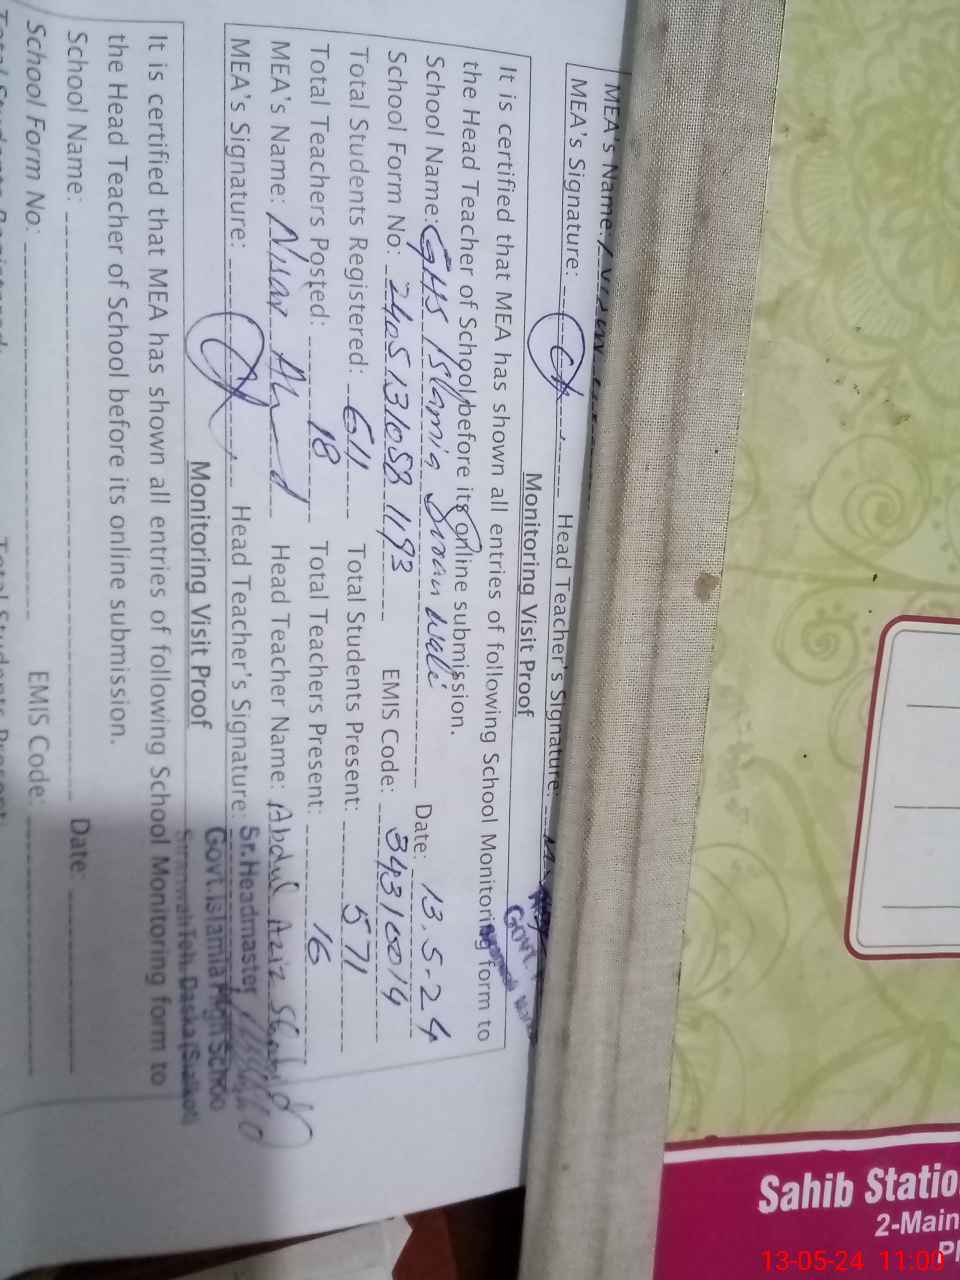 MEA's Name:
MEA's Signature: Head Teacher's Signature:
Monitoring Visit Proof
It is certified that MEA has shown all entries of following School Monitoring form to
the Head Teacher of School before its online submission.
School Name: GHS Islamia Siran Wali Date: 13.5-24
School Form No: 2405131058 1193 EMIS Code: 34310014
Total Students Registered: 611 Total Students Present: 571
Total Teachers Posted: 18 Total Teachers Present: 16
MEA's Name: Nisar Ahmad Head Teacher Name: Abdul Aziz Shahid
MEA's Signature: Head Teacher's Signature:
Sr. Headmaster
Govt. Islamia High School
Siranwali Teh. Daska (Sialkot)
Monitoring Visit Proof
It is certified that MEA has shown all entries of following School Monitoring form to
the Head Teacher of School before its online submission.
School Name: Date:
School Form No: EMIS Code:
Sahib Statio
2-Main
13-05-24 11:00